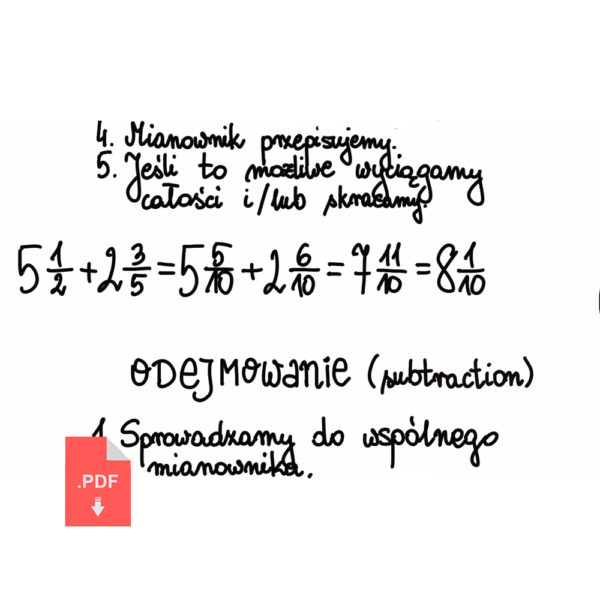 4. Mianownik przepisujemy.
5. Jeśli to możliwe wyciągamy
całości i/lub skracamy.
5 1/2 + 2 3/5 = 5 5/10 + 2 6/10 = 7 11/10 = 8 1/10
ODEJMOWANIE (subtraction)
1. Sprowadzamy do wspólnego
mianownika.
.PDF